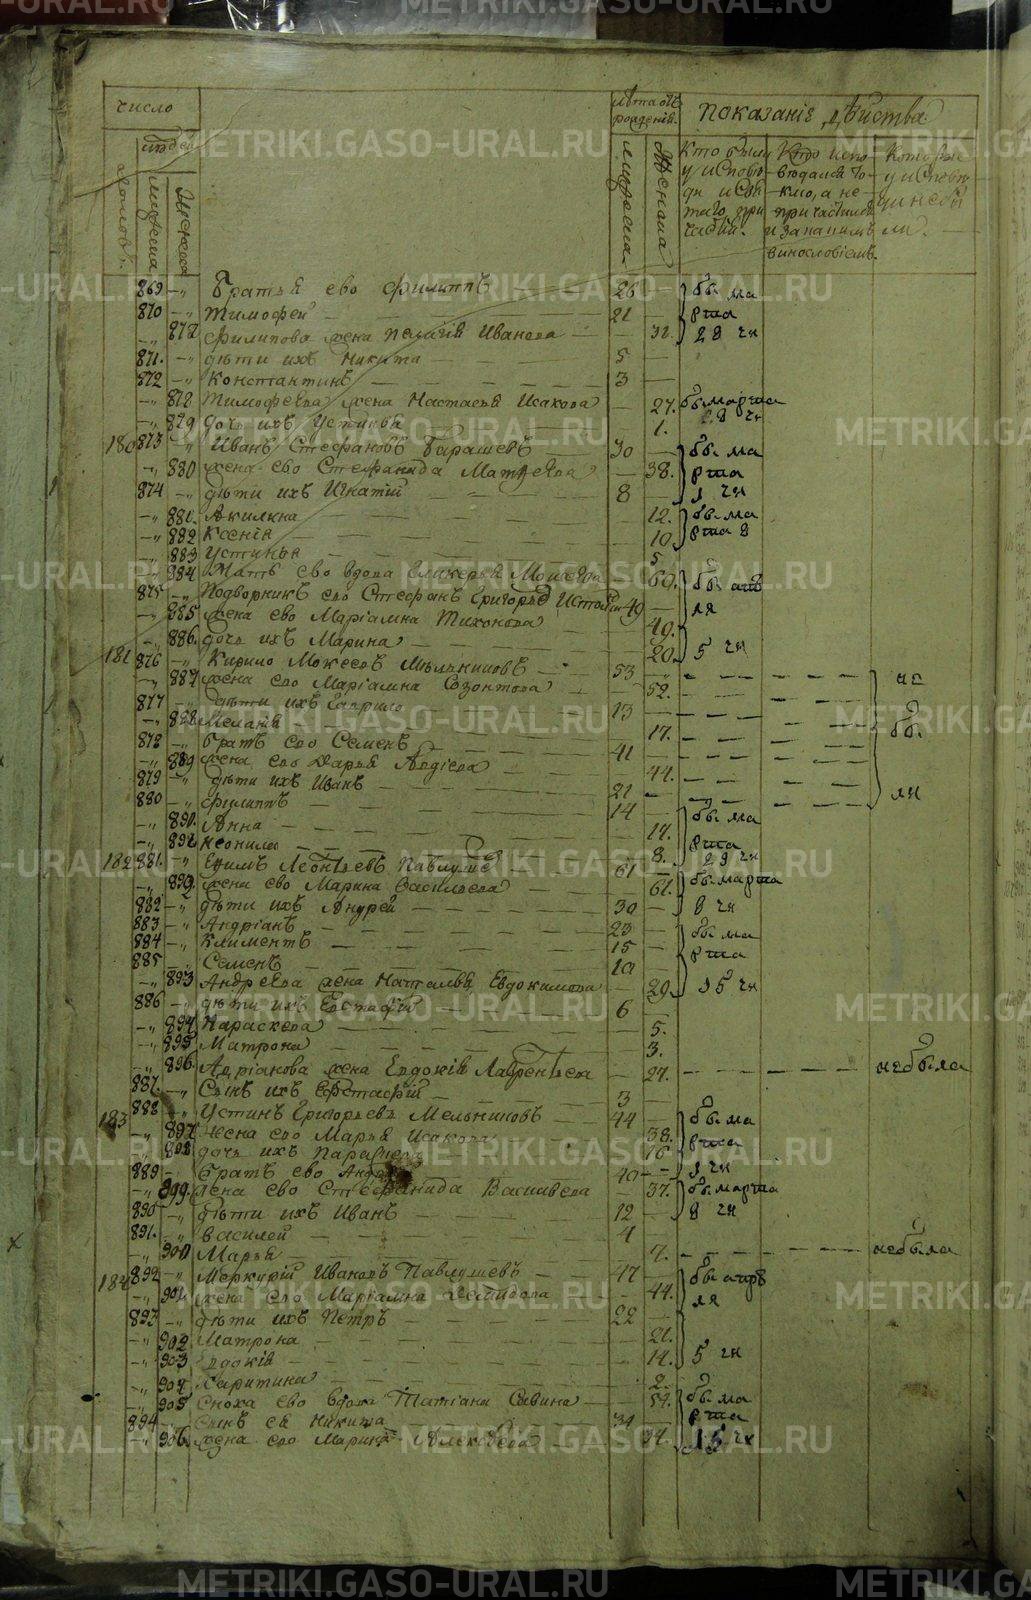 число
людей
домовъ.
мужеска
женска
лѣта отъ рожденія.
мужеска
женска
показаніе дѣйства.
кто были у исповѣди и святаго причастія.
кто исповѣдался токмо, а не причастился и за каким винословіемъ.
которые у исповѣди не были.
869 Братья ево Филиппъ 26 бы. ма
870 Тимофей 21 рта
Филипова жена Пелагія Иванова 32. 28 чи
871. дѣти ихъ Никита 5
872 Константинъ 3
878 Тимофеева жена Настасья Исакова 27. бы. марта
879 дочь ихъ Устинья 1. 28 чи
180 873 Иванъ Стефановъ Барашевъ 30 бы. ма
880 жена ево Стефанида Матвеева 38. рта
874 дѣти ихъ Игнатій 8 чи
881. Акилина 12. бы. ма
882 Ксенія 10. рта 8
883 Устинья 5
884 Мать ево вдова Гликерья Моисеева 60. бы. апъ
875 Подворникъ ево Стефанъ Григорьев 49 ля
885 жена ево Маріамна Тихонова 49.
886. дочь ихъ Марина 20. 5 чи
181 876 Кирило Мокеевъ Мельниковъ 53 не
887 жена ево Маріамна Созонтова 52.
877 дѣти ихъ Гаврило 13 бы.
888. Меланія 17.
878 братъ ево Семенъ 41
889 жена ево Дарья Авдіева 44.
879 дѣти ихъ Иванъ 21 ли
880 Филиппъ 14
890. Анна 17. бы. ма
891 Неонила 8. рта 29 чи
182 881. Ефимъ Леонтьевъ Павлушевъ 61
892. жена ево Марина Васильева 61. бы. марта
882 дѣти ихъ Андрей 30 8 чи
883 Андріанъ 23 бы. ма
884 Климентъ 15 рта
885 Семенъ 10
893 Андреева жена Наталья Евдокимова 29. 15 чи
886 дѣти ихъ Евстафій 6
894 Параскева 5.
895 Матрона 3.
896. Адріанова жена Евдокія Лаврентьева 27. не была
887. Сынъ ихъ Ефстафій 3
183 888 Устинъ Григорьевъ Мельниковъ 44 бы. ма
897 жена ево Марья Исакова 38. рта
898 дочь ихъ Параскева 16
889 братъ ево 40 чи
899. жена ево Стефанида Василѣева 37. бы. марта
890 дѣти ихъ Иванъ 12 8 чи
891. Василей 4
900 Марья 7. не была
184 892 Меркурій Ивановъ Павлушевъ 47 бы. апрѣ
901. жена ево Маріамна Демидова 44. ля
893 дѣти ихъ Петръ 22
902 Матрона 21.
903 Евдокія 14. 5 чи
904 Харитина 2.
905 Сноха ево вдова Татіана Савина 54. бы. ма
894 Сынъ ея Никита 34 рта
906. жена ево Марина Алексѣева 34. 15 чи
METRIKI.GASO-URAL.RU